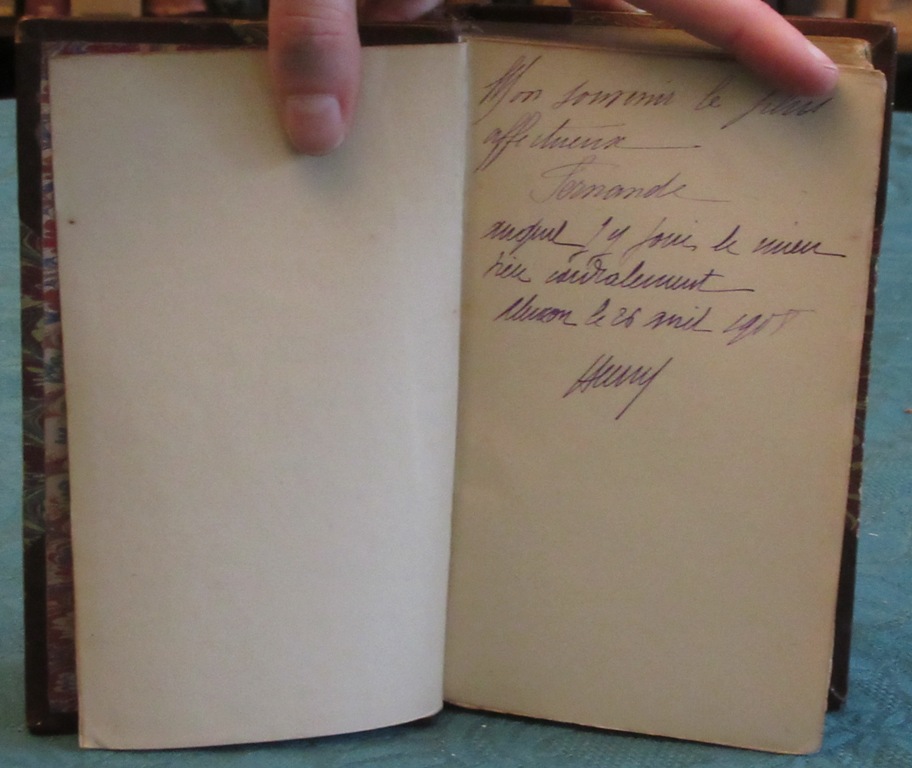 Mon souvenir le plus
affectueux
Fernande
auquel j'y joins le mien
très cordialement
le 26 avril 1908
Henry